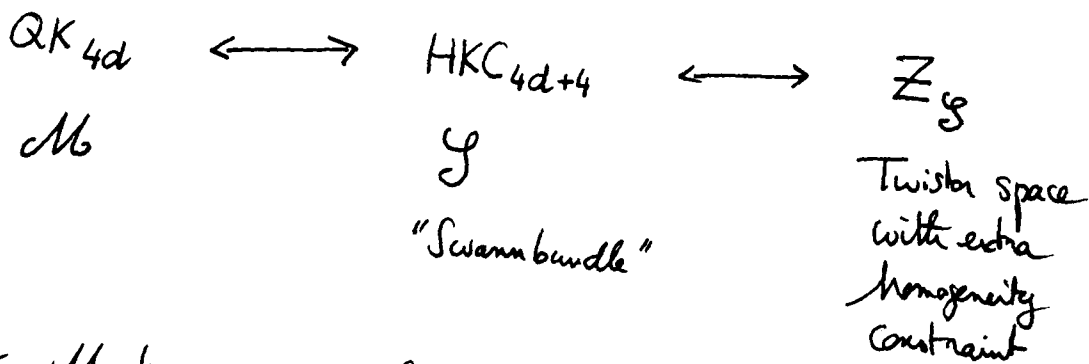 QK_{4d} ⟷ HKC_{4d+4} ⟷ Z_𝒮
ℳ 𝒮
"Swann bundle"
Twistor space
with extra
homogeneity
constraint